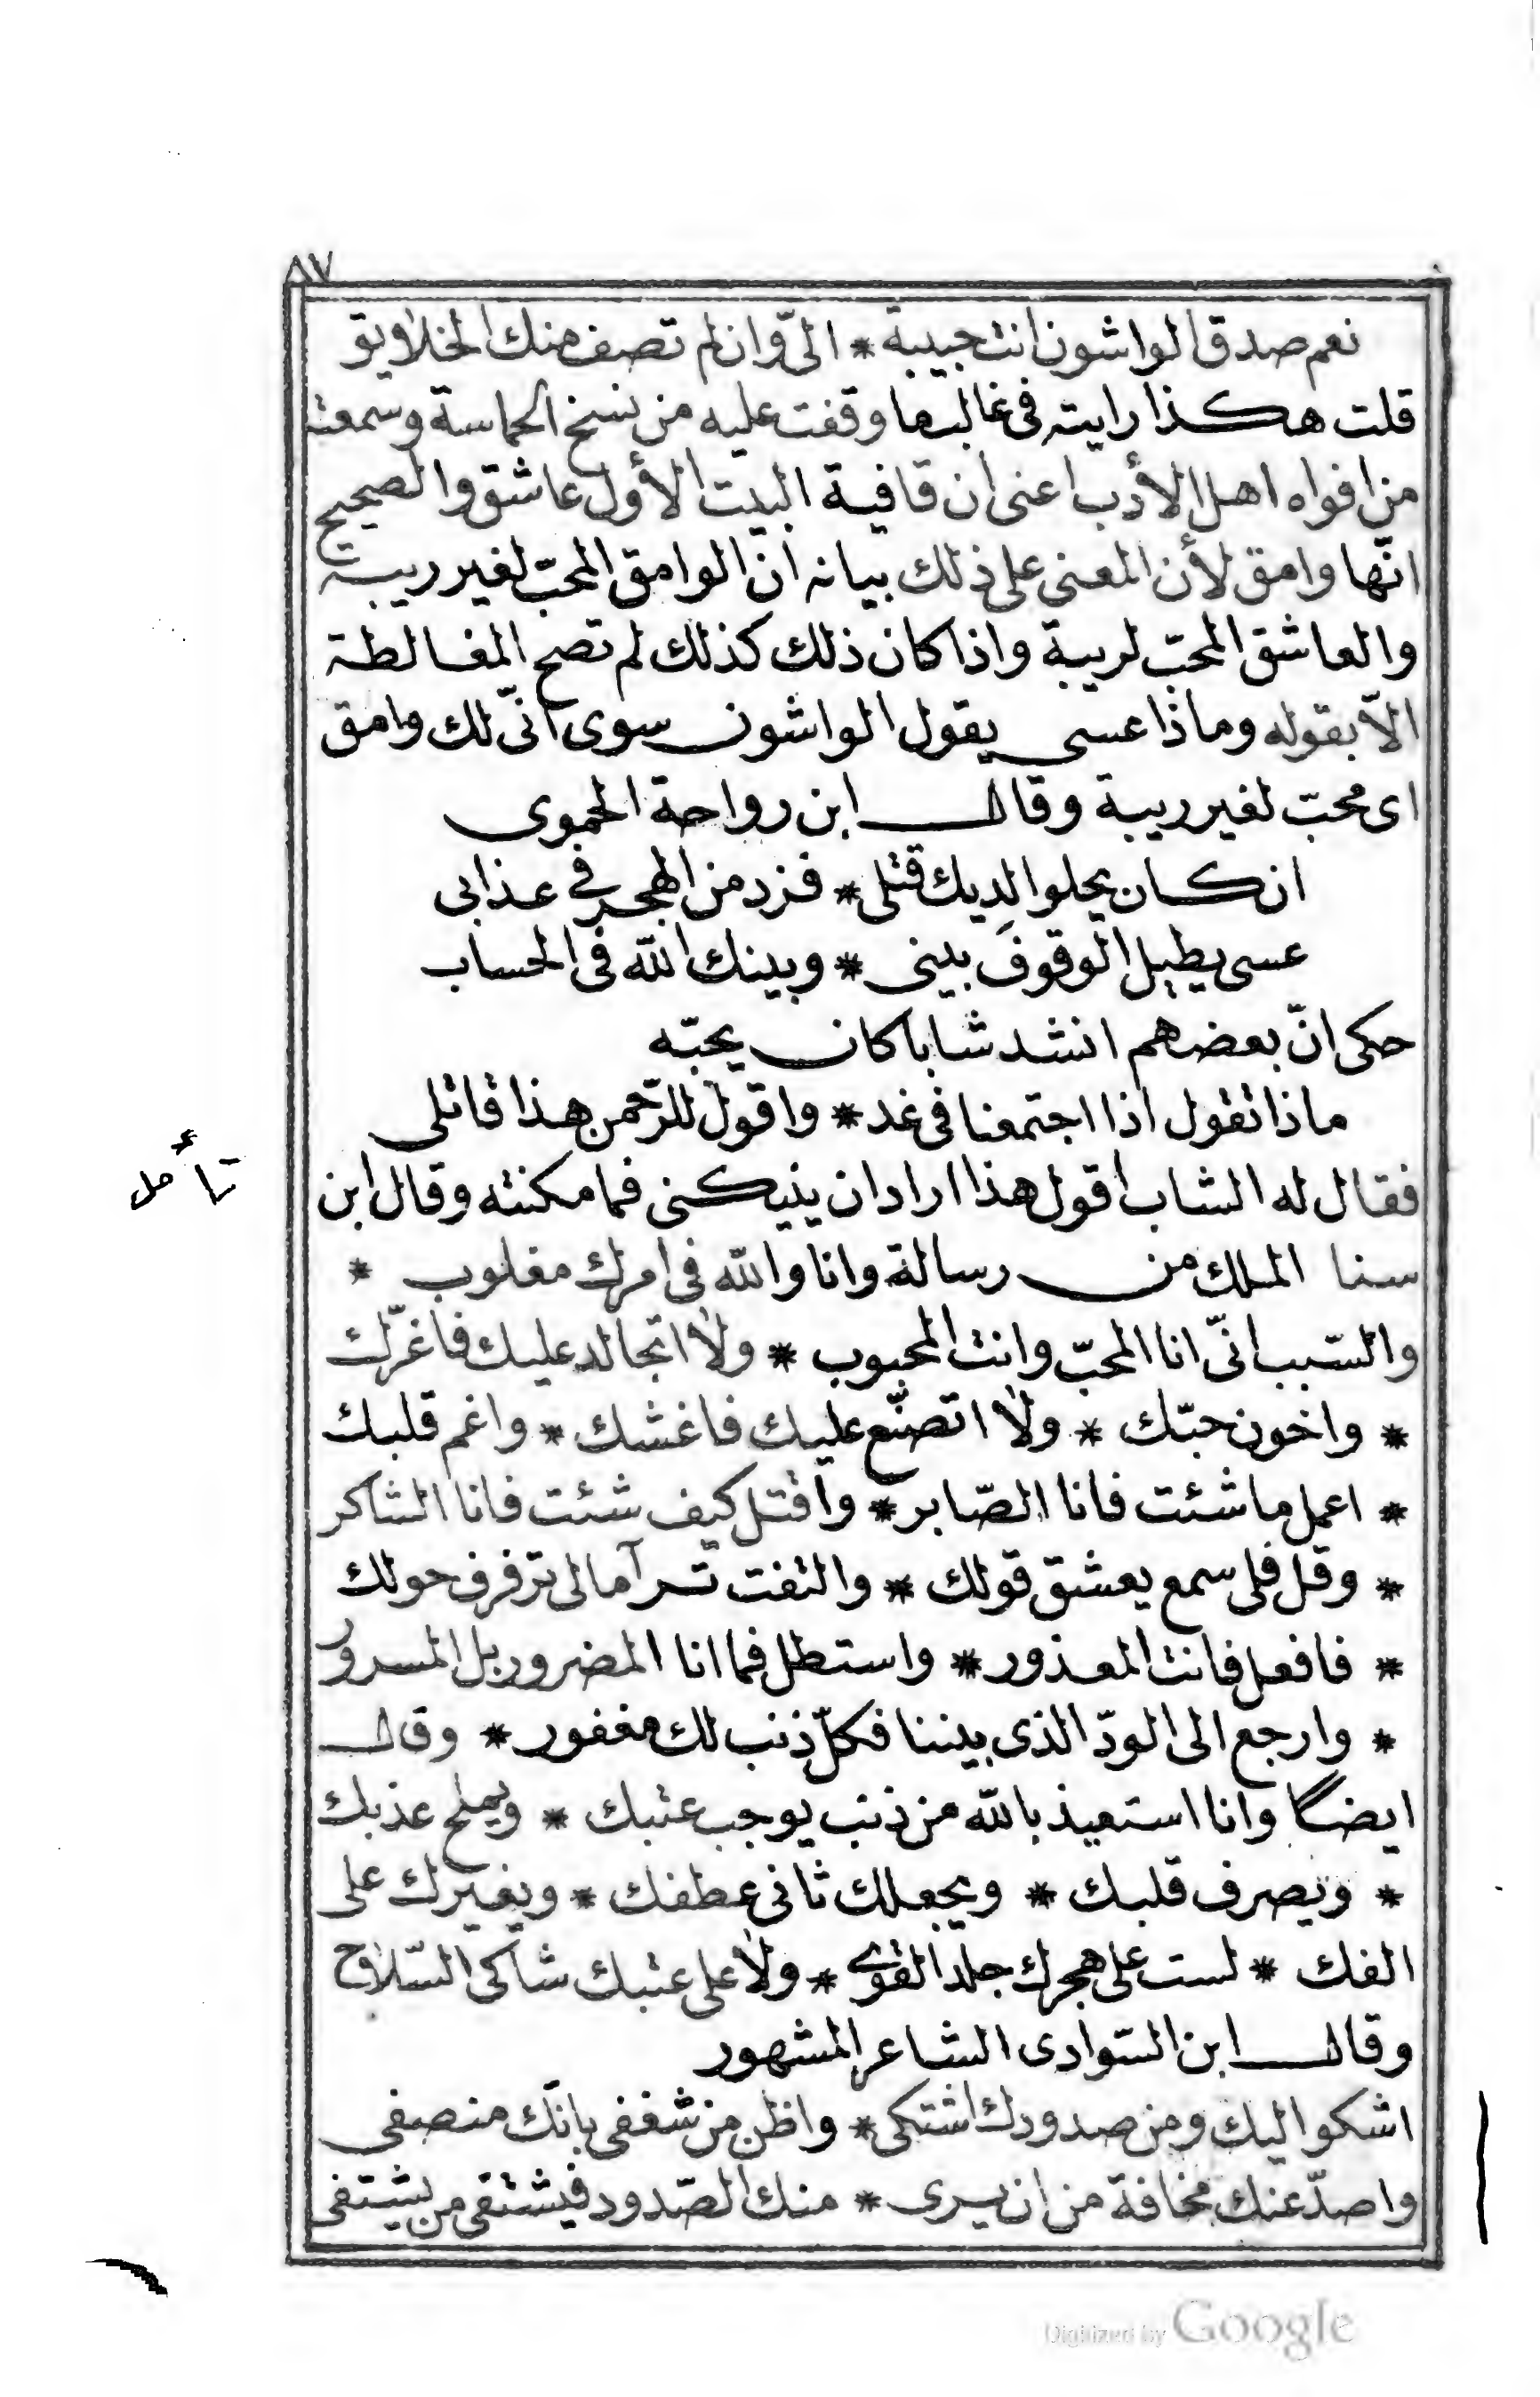 ٨٧
نعم صدق الواشون انت حبيبة * الىّ وان لم تصف منك الخلايق
قلت هكذا رايته فى غالب ما وقفت عليه من نسخ الحماسة وسمعته
من افواه اهل الأدب اعنى ان قافية البيت الأول عاشق والصحيح
انّها وامق لأن المعنى على ذلك بيانه ان الوامق المحبّ لغير ريبة
والعاشق المحبّ لريبة واذا كان ذلك كذلك لم تصح المغالطة
الاّ بقوله وماذا عسى يقول الواشون سوى انّى لك وامق
اى محبّ لغير ريبة وقال ابن رواحة الحموى
ان كان يحلوا لديك قتلى * فزد من الهجر فى عذابى
عسى يطيل الوقوف بينى * وبينك الله فى الحساب
حكى انّ بعضهم انشد شابا كان يحبّه
ماذا تقول اذا اجتمعنا فى غد * واقول للرّحمن هذا قاتلى
تأمل
فقال له الشاب اقول هذا اراد ان ينيكنى فما مكنته وقال ابن
سنا الملك من رسالة وانا والله فى امرك مغلوب *
والسّبب انّى انا المحبّ وانت المحبوب * ولا اتجالد عليك فاغرّك
* واخون حبّك * ولا اتصنّع عليك فاغشك * واغم قلبك
* اعمل ما شئت فانا الصّابر * واقتل كيف شئت فانا الشاكر
* وقل فلى سمع يعشق قولك * والتفت تر آمالى ترفرف حولك
* فافعل فانت المعذور * واستطل فما انا المضرور بل المسرور
* وارجع الى الودّ الذى بيننا فكلّ ذنب لك مغفور * وقال
ايضًا وانا استعيذ بالله من ذنب يوجب عتبك * ويملح عذبك
* ويصرف قلبك * ويجعلك ثانى عطفك * ويغيرك على
الفك * لست على هجرك جلد القوى * ولا على عتبك شاكى السّلاح
وقال ابن السّوادى الشاعر المشهور
اشكوا اليك ومن صدودك اشتكى * واظن من شغفى بانّك منصفى
واصدّ عنك مخافة من ان يرى * منك الصّدود فيشتفى من يشتفى
Digitized by Google